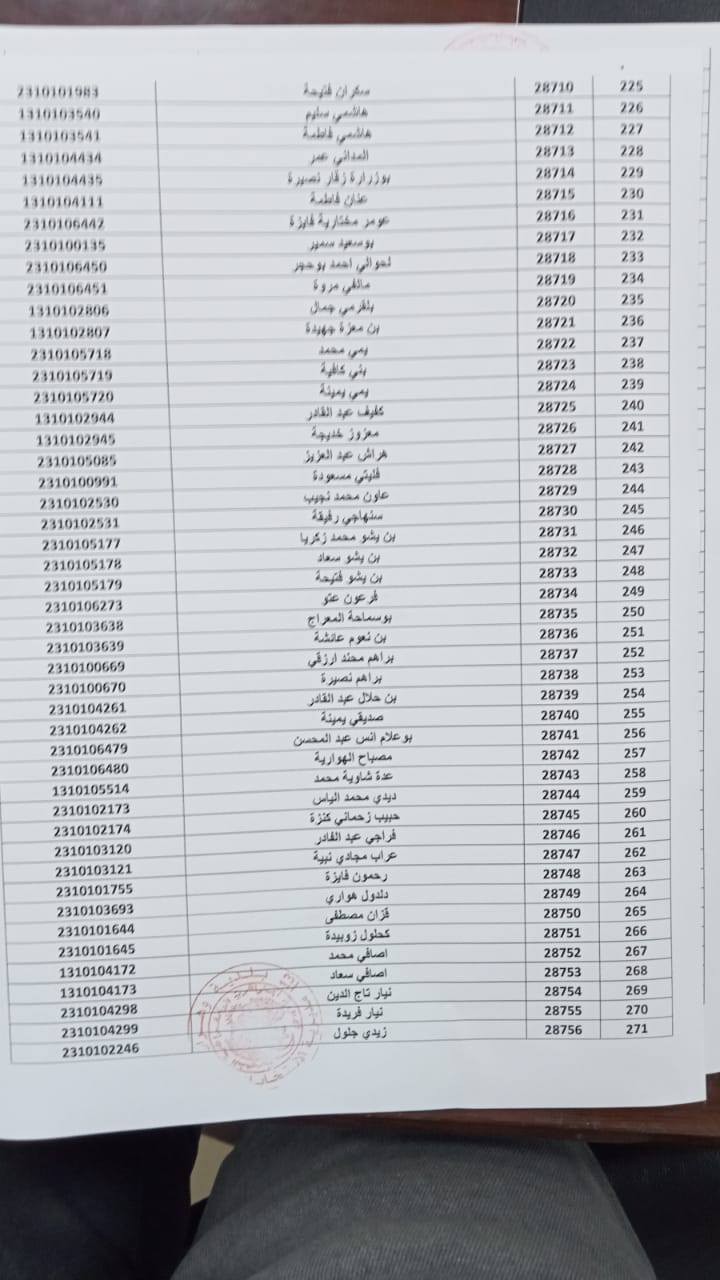 225 28710 سكران فتيحة 2310101983
226 28711 هاشمي سليم 1310103540
227 28712 هاشمي فاطمة 1310103541
228 28713 المداني عمر 1310104434
229 28714 بوزرارة زقار نصيرة 1310104435
230 28715 عنان فاطمة 1310104111
231 28716 عومر مختارية فايزة 2310106442
232 28717 بوسعيد سمير 2310100135
233 28718 لحوالي احمد بوحجر 2310106450
234 28719 مالفي مروة 2310106451
235 28720 بلقرمي جمال 1310102806
236 28721 بن معزة جهيدة 1310102807
237 28722 يمي محمد 2310105718
238 28723 يني كافية 2310105719
239 28724 يمي يمينة 2310105720
240 28725 كفيف عبد القادر 1310102944
241 28726 معزوز خديجة 1310102945
242 28727 هراش عبد العزيز 2310105085
243 28728 فليتي مسعودة 2310100991
244 28729 عاون محمد نجيب 2310102530
245 28730 سنهاجي رفيقة 2310102531
246 28731 بن يشو محمد زكريا 2310105177
247 28732 بن يشو سعاد 2310105178
248 28733 بن يشو فتيحة 2310105179
249 28734 فرعون عتو 2310106273
250 28735 بوسماحة المعراج 2310103638
251 28736 بن نعوم عائشة 2310103639
252 28737 براهم محند ارزقي 2310100669
253 28738 براهم نصيرة 2310100670
254 28739 بن حلال عبد القادر 2310104261
255 28740 صديقي يمينة 2310104262
256 28741 بوعلام انس عبد المحسن 2310106479
257 28742 مصباح الهوارية 2310106480
258 28743 عدة شاوية محمد 1310105514
259 28744 ديدي محمد الياس 2310102173
260 28745 حبيب زحماني كنزة 2310102174
261 28746 فراجي عبد القادر 2310103120
262 28747 عراب مجادي نبية 2310103121
263 28748 رحمون فايزة 2310101755
264 28749 دلدول هواري 2310103693
265 28750 قزان مصطفى 2310101644
266 28751 كحلول زوبيدة 2310101645
267 28752 اصافي محمد 1310104172
268 28753 اصافي سعاد 1310104173
269 28754 نيار تاج الدين 2310104298
270 28755 نيار فريدة 2310104299
271 28756 زيدي جلول 2310102246